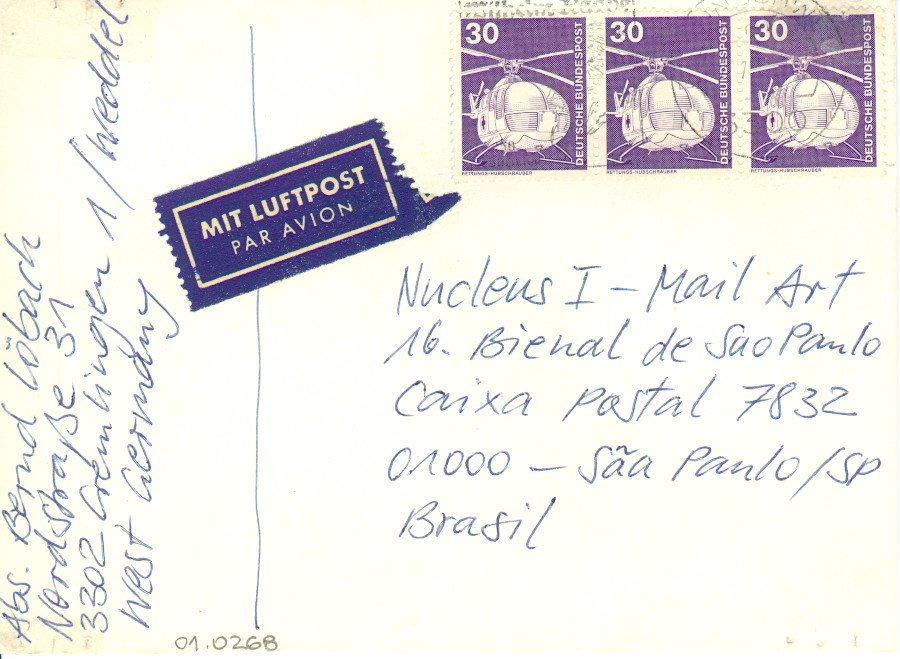 30 30 30
DEUTSCHE BUNDESPOST DEUTSCHE BUNDESPOST DEUTSCHE BUNDESPOST
RETTUNGS-HUBSCHRAUBER RETTUNGS-HUBSCHRAUBER RETTUNGS-HUBSCHRAUBER
MIT LUFTPOST
PAR AVION
Abs. Bernd Löbach
Nordstraße 31
3302 Cremlingen 1/Weddel
West Germany
Nucleus I - Mail Art
16. Bienal de Sao Paulo
Caixa Postal 7832
01000 - São Paulo/SP
Brasil
01.0268